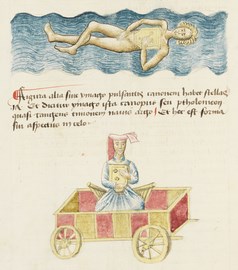 Figura alia sive ymago pulsantis canonem habet stellas
ia Et dicitur ymago ista canopus seu ptholomeon
quasi tangens timonem navis argo Et hec est forma
sui aspectus in celo